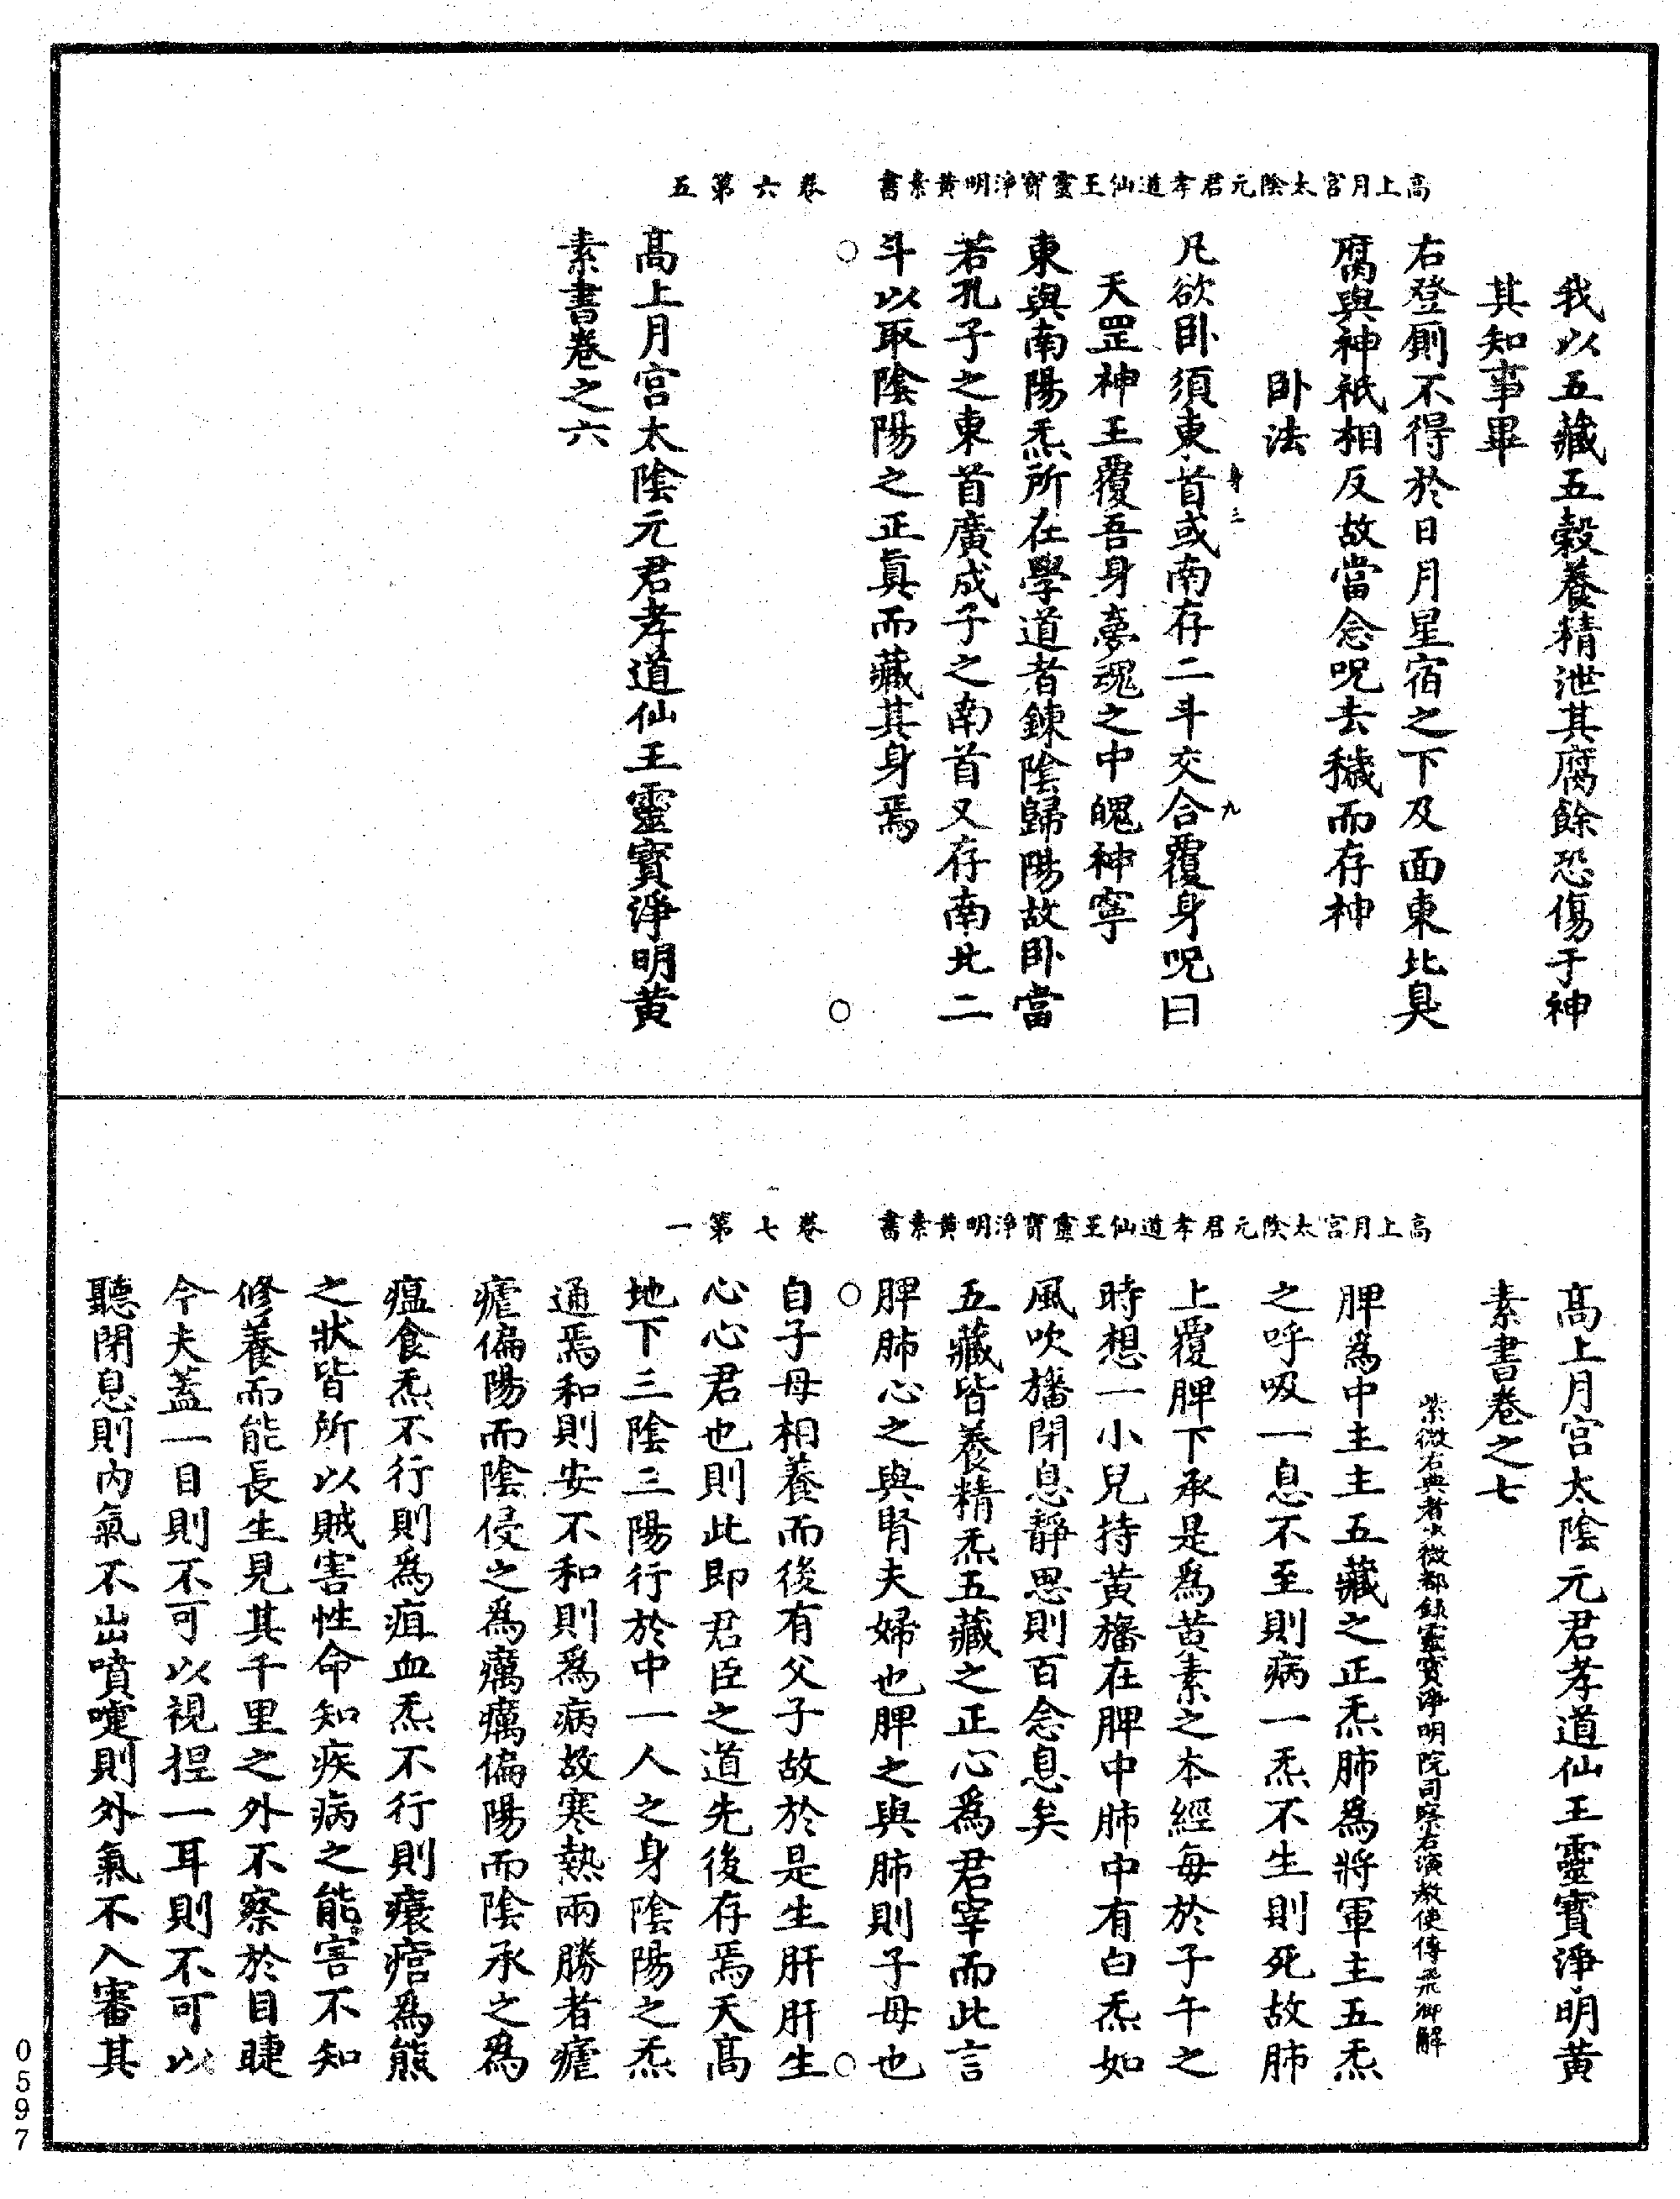 高上月宫太陰元君孝道仙王靈寶淨明黃素書　卷六第五
我以五藏五榖養精泄其腐餘恐傷于神
其知事畢
右登厠不得於日月星宿之下及面東北臭
腐與神祇相反故當念呪去穢而存神
卧法
身三
九
凡欲卧須東首或南存二斗交合覆身呪曰
天罡神王覆吾身夢魂之中魄神寧
東與南陽炁所在學道者鍊陰歸陽故卧當
若孔子之東首廣成子之南首又存南北二
斗以取陰陽之正眞而藏其身焉
高上月宫太陰元君孝道仙王靈寶淨明黃
素書卷之六
高上月宫太陰元君孝道仙王靈寶淨明黃素書　卷七第一
高上月宫太陰元君孝道仙王靈寶淨明黃
素書卷之七
紫微右典者太微都錄靈寶淨明院司察右演教使傅飛卿解
脾爲中主主五藏之正炁肺爲將軍主五炁
之呼吸一息不至則病一炁不生則死故肺
上覆脾下承是爲苦素之本經每於子午之
時想一小兒持黃旛在脾中肺中有白炁如
風吹旛閉息靜思則百念息矣
五藏皆養精炁五藏之正心爲君宰而此言
脾肺心之與腎夫婦也脾之與肺則子母也
自子母相養而後有父子故於是生肝肝生
心心君也則此即君臣之道先後存焉天高
地下三陰三陽行於中一人之身陰陽之炁
通焉和則安不和則爲病故寒熱兩勝者瘧
瘧偏陽而陰侵之爲癘癘偏陽而陰承之爲
瘟食炁不行則爲疽血炁不行則癭痞爲熊
之狀皆所以賊害性命知疾病之能害不知
修養而能長生見其千里之外不察於目睫
今夫蓋一目則不可以視捏一耳則不可以
聽閉息則内氣不出噴嚏則外氣不入審其
0597